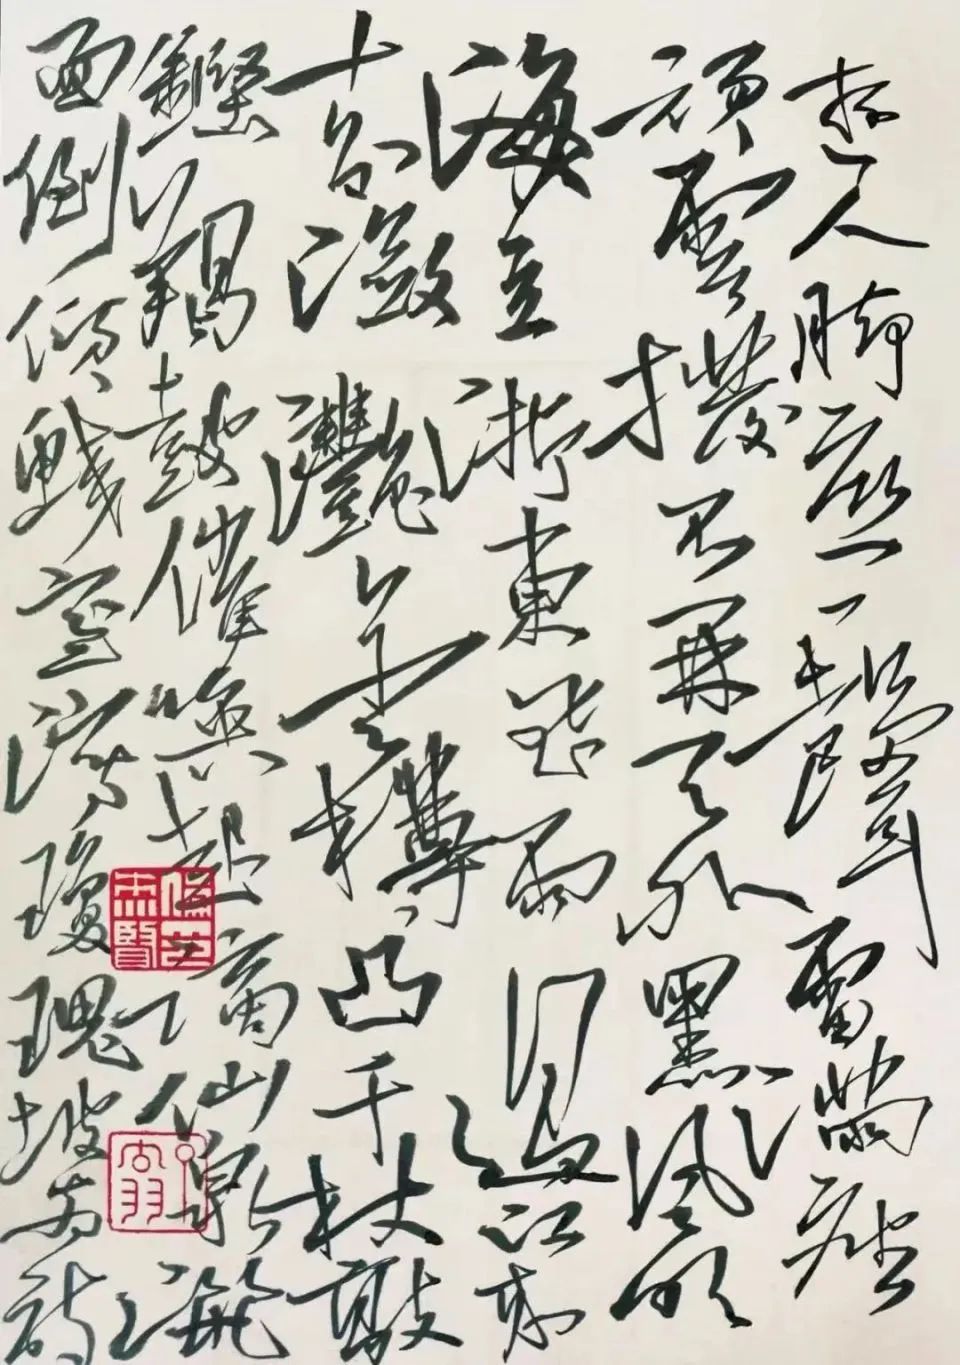 遊人脚底一聲雷滿座
頑雲撥不開天外黑風吹
海立浙東飛雨過江來
十分瀲灧金樽凸千杖敲
鏗羯鼓催喚起謫仙泉灑
面倒傾鮫室瀉瓊瑰坡詩